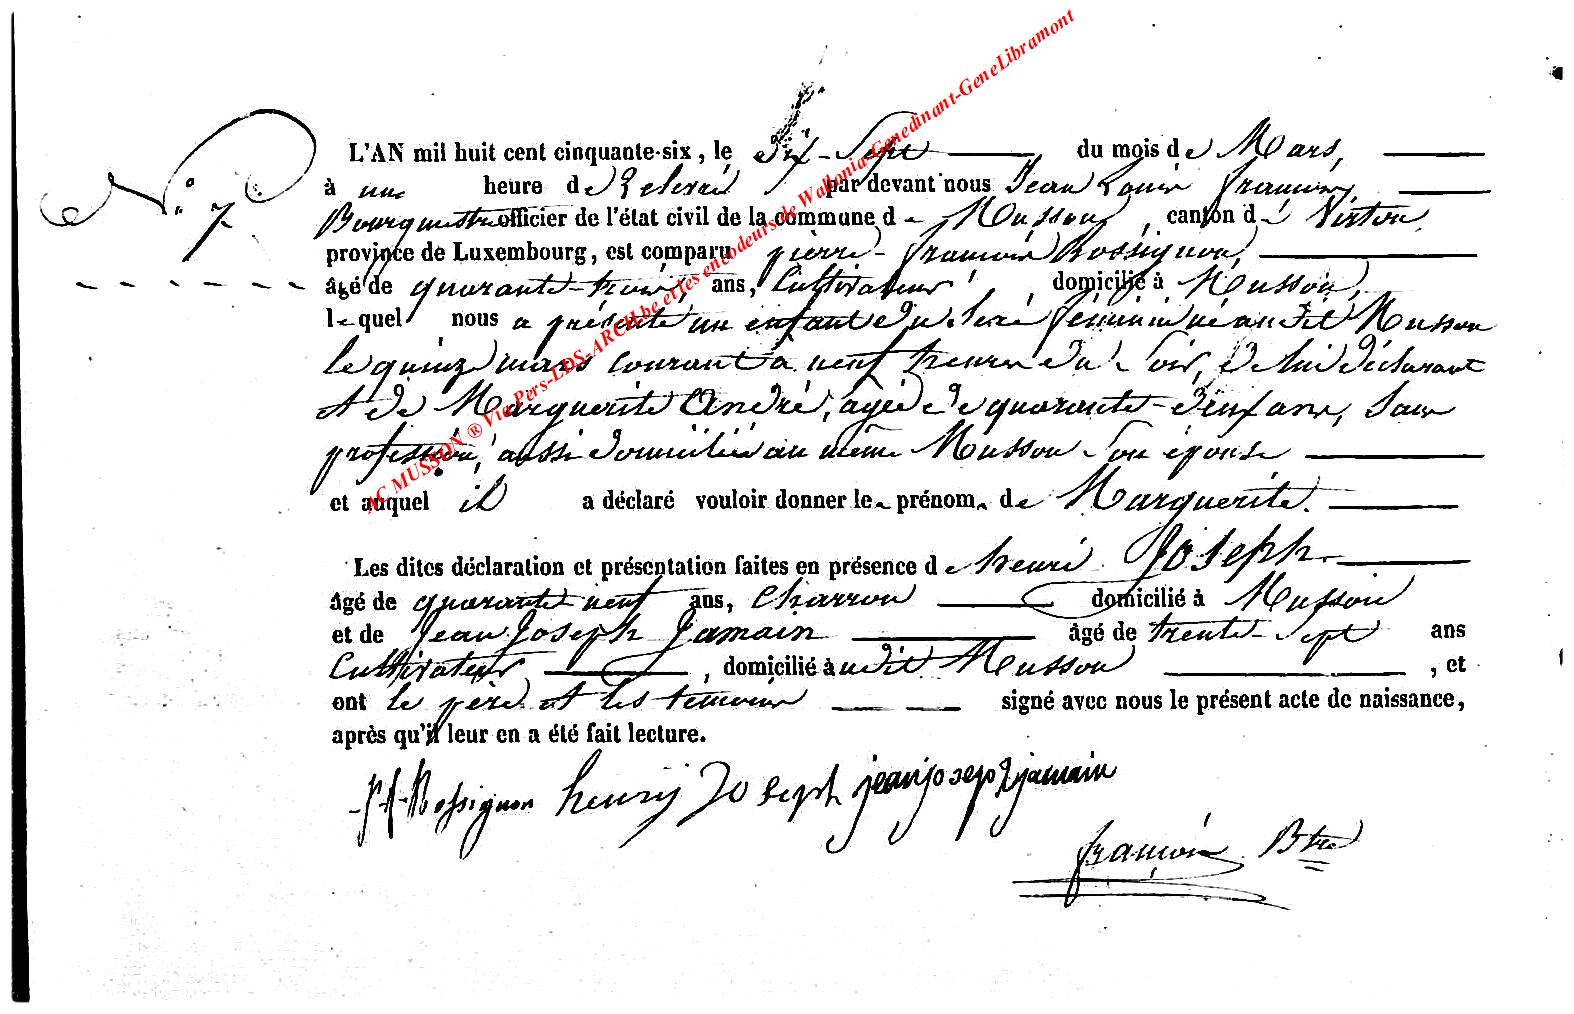 N.° 7
L'AN mil huit cent cinquante-six, le dix-Sept du mois de Mars,
à une heure de relevée par devant nous Jean Louis François,
Bourgmestre officier de l'état civil de la commune de Musson, canton de Virton,
province de Luxembourg, est comparu pierre-françois Rossignon,
âgé de quarante-trois, ans, Cultivateur, domicilié à Musson,
lequel nous a présenté un enfant du Sexe féminin né au dit Musson
le quinze mars courant à neuf heures du Soir, de lui déclarant
et de Marguerite André, agée de quarante-deux ans, Sans
profession, aussi domiciliée au même Musson Son épouse
et auquel il a déclaré vouloir donner le prénom de Marguerite.
Les dites déclaration et présentation faites en présence de henri Joseph
âgé de quarante neuf ans, Charron domicilié à Musson
et de Jean Joseph Jamain âgé de trente-Sept ans
Cultivateur, domicilié audit Musson, et
ont le père et les temoins signé avec nous le présent acte de naissance,
après qu'il leur en a été fait lecture.
P f Rossignon henry Joseph jean joseph jamain
françois Btre
AC MUSSON ® Via Pers-LDS-ARCH.be et les encodeurs de Wallonia-Genedinant-GeneLibramont